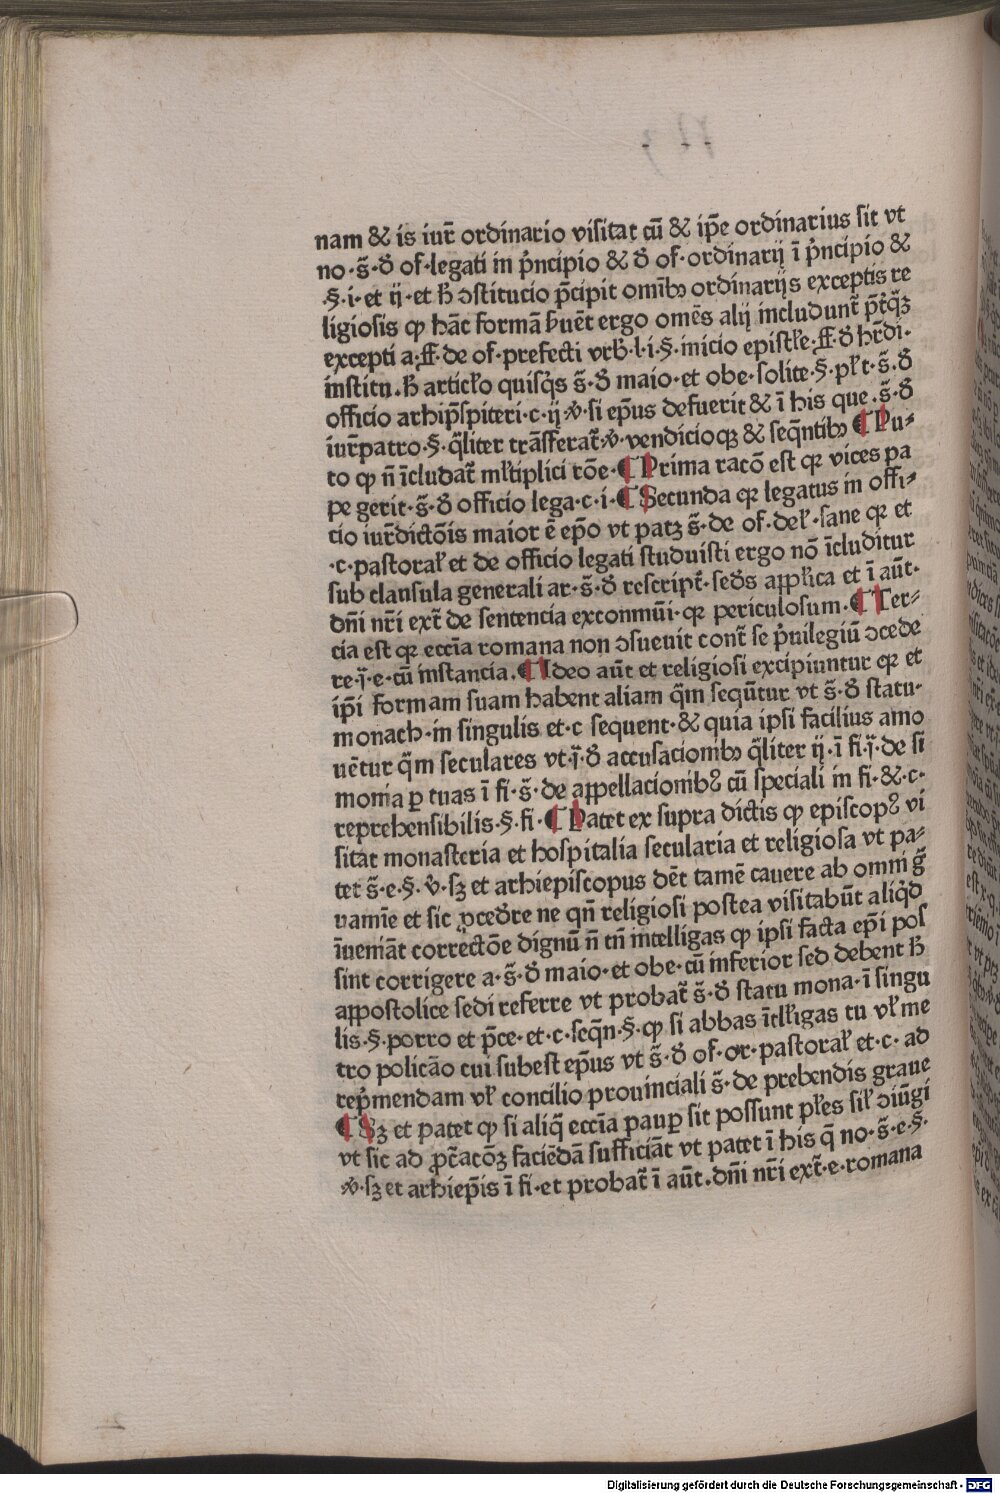 nam & is iur̄ ordinario visitat cū & ip̄e ordinarius sit vt
no·s̄·ꝺ̄ of·legati in pͥncipio & ꝺ̄ of·ordinarij ī pͥncipio &
·§·i·et ij·et ħ ↄstitucio p̄cipit omībꝫ ordinarijs exceptis re
ligiosis ꝙ hāc formā ẜuēt ergo omēs alij includunt̄ p̄tꝗꝫ
excepti a·ff·de of·prefecti vrb̄·l·i·§·inicio epistłe·ff·ꝺ̄ hr̄di·
institu.ħ articło quisqͥs s̄·ꝺ̄ maio·et obe·solite·§·pł t·s̄·ꝺ̄
officio arhip̄spiteri·c·ij·ꝟ·si ep̄us defuerit & ī his que·s̄·ꝺ̄
iur̄patro·§·q̄liter trāsferat̄·ꝟ·vendicioqꝫ & seq̄ntibꝫ ¶ Pu⸗
to ꝙ n̄ īcludat̄ młtiplici rōe·¶ Prima racō est qꝛ vices pa
pe gerit·s̄·ꝺ̄ officio lega·c·i·¶ Secunda qꝛ legatus in offi⸗
cio iur̄dictōis maior ē ep̄o vt patꝫ s̄·de of·deł·sane qꝛ et
·c·pastorał et de officio legati studuisti ergo nō īcluditur
sub clausula generali ar·s̄·ꝺ̄ rescript̄·seds appłica et ī aūt·
dn̄i nr̄i ext̄ de sentencia exconmūi·qꝛ periculosum·¶ Ter⸗
cia est qꝛ eccīa romana non ↄsueuit cont̄ se pͥuilegiū ↄcede
re·j̄·e·cū instancia·¶ Ideo aūt et religiosi excipiuntur qꝛ et
ip̄i formam suam habent aliam q̄m seqūtur vt s̄·ꝺ̄ statu·
monach·in singulis et·c sequent·& quia ipsi facilius amo
uētur q̄m seculares vt·j̄·ꝺ̄ accusacionibꝫ q̄liter ij·ī fi·j̄·de si
monia ꝑ tuas ī fi·s̄·de appellacionibꝰ cū speciali in fi·&·c·
reprehensibilis·§·fi·¶ Patet ex supra dictis ꝙ episcopꝰ vi
sitat monasteria et hospitalia secularia et religiosa vt pa⸗
tet s̄·e·§·ꝟ·sꝫ et arhiepiscopus dēt tamē cauere ab omni ḡ
uamīe et sic ꝓceꝺ̄re ne qn̄ religiosi postea visitabūt aliqͥd
īueniāt correctōe dignū n̄ tn̄ intelligas ꝙ ipsi facta ep̄i pos
sint corrigere a·s̄·ꝺ̄ maio·et obe·cū inferior sed debent ħ
appostolice sedi referre vt probat̄ s̄·ꝺ̄ statu mona·ī singu
lis·§·porro et p̄ce·et·c·seq̄n·§·ꝙ si abbas ītłligas tu vł me
tro policāo cui subest ep̄us vt s̄·ꝺ̄ of·or·pastorał et·c·ad
rep̄mendam vł concilio prouinciali s̄·de prebendis graue
¶ Sꝫ et patet ꝙ si aliq̄ eccīa pauꝑ sit possunt płes sił ↄiūgi
vt sic ad ꝓc̄acōꝫ faciēdā sufficiāt vt patet ī his q̄ no·s̄·e·§·
ꝟ·sꝫ et arhiep̄is ī fi·et probat̄ ī aūt·dn̄i nr̄i ext̄·e·romana
Digitalisierung gefördert durch die Deutsche Forschungsgemeinschaft - DFG